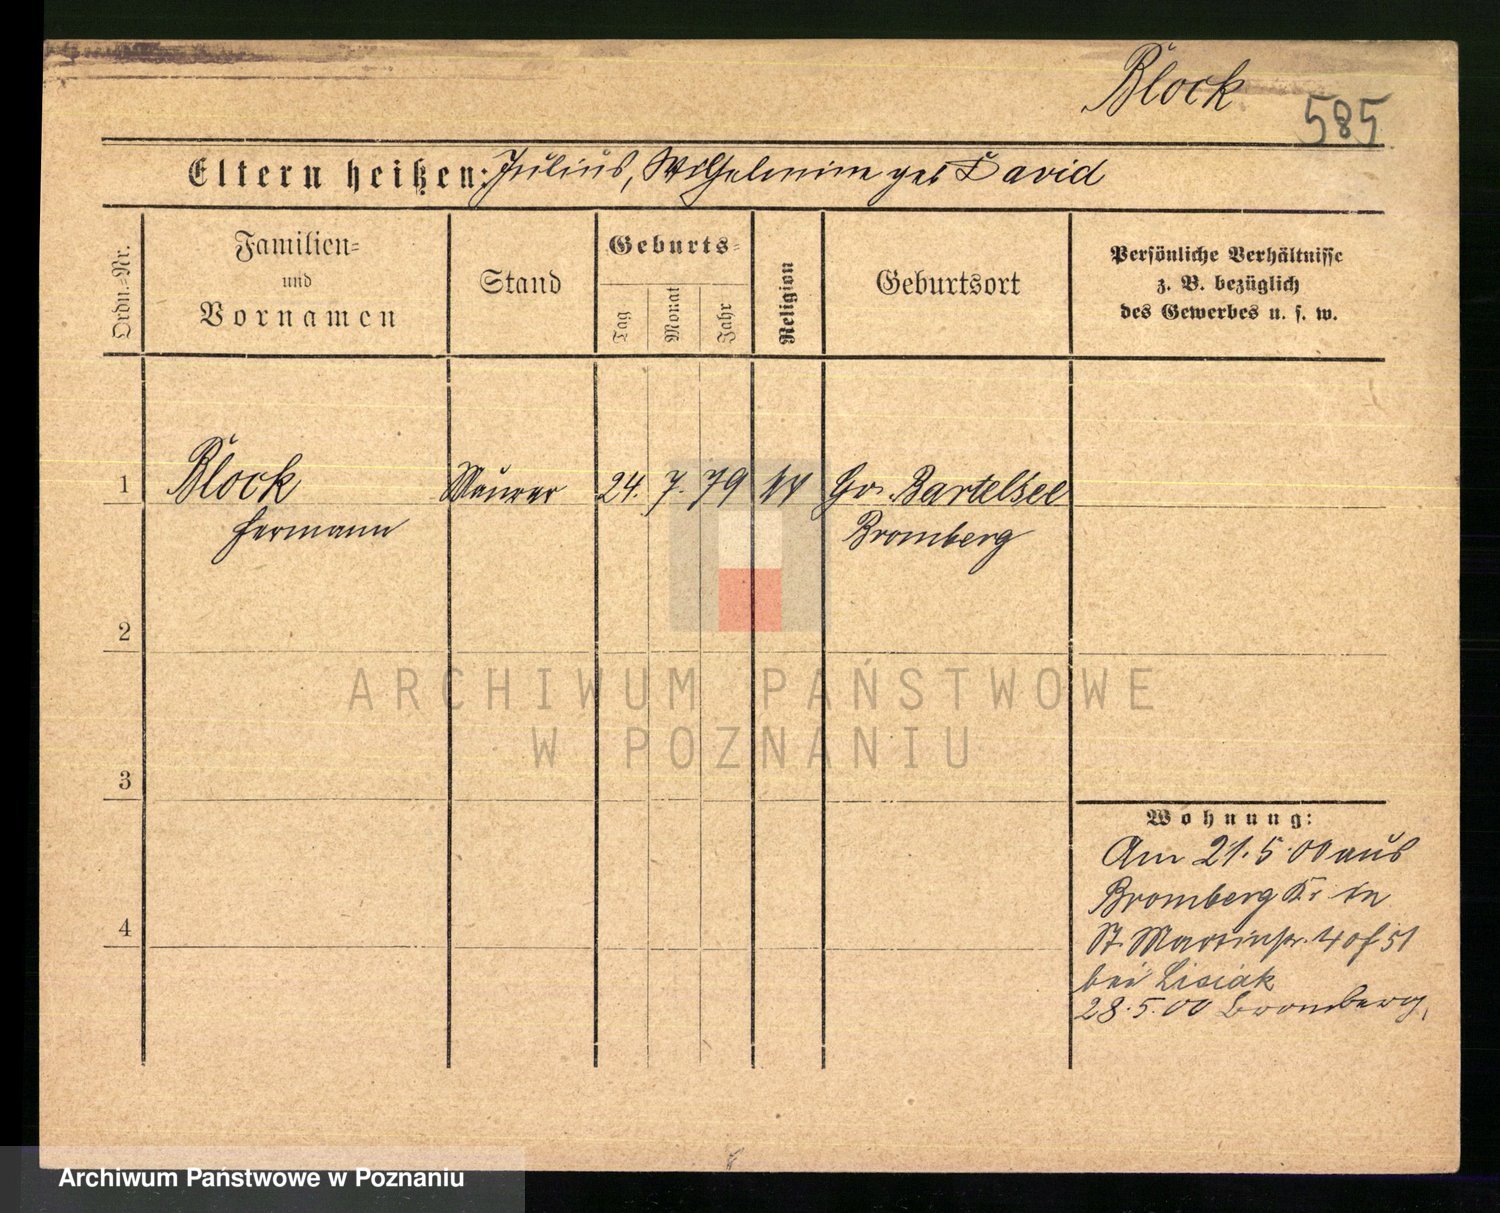 Block
585
Eltern heißen: Julius, Wilhelmine geb David
Ordn.-Nr.
Familien-
und
Vornamen
Stand
Geburts-
Tag
Monat
Jahr
Religion
Geburtsort
Persönliche Verhältnisse
z. B. bezüglich
des Gewerbes u. s. w.
1 Block Maurer 24. 7. 79 Gr. Bartelsee
Hermann Bromberg
2
ARCHIWUM PAŃSTWOWE
W POZNANIU
3
Wohnung:
Am 21.5.00 aus
Bromberg Kr in
4 St. Martinstr. 40 51
bei Lisiak
28.5.00 Bromberg,
Archiwum Państwowe w Poznaniu